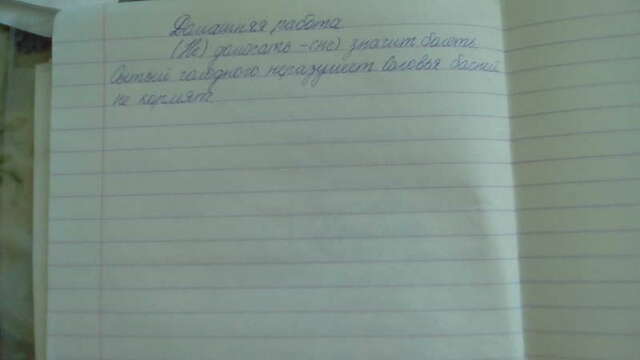 Домашняя работа
(Не) домогать - (не) значит болеть.
Сытый голодного неразумеет Соловья баснями
не кормят